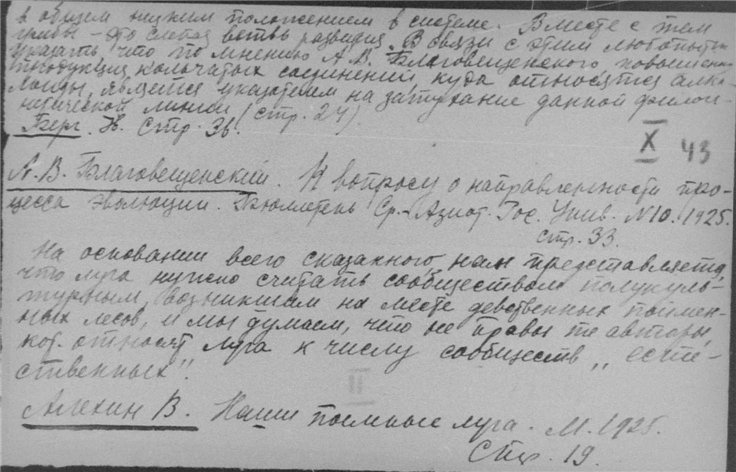 в общем низким положением в системе. Вместе с тем
грибы – это слепая ветвь развития. В связи с этим любопытно
указать что по мнению А.В. Благовещенского повышение
продукция кольчатых соединений куда относятся алка-
лоиды, является указателем на затухание данной филог-
нетической линии (стр. 27)
Берг. Н. Стр. 36.
X 43
А.В. Благовещенский. К вопросу о направленности про-
цесса эволюции. Бюллетень Ср.-Азиат. Гос. Унив. N10. 1925.
стр. 33.
На основании всего сказанного, нам представляется,
что луга нужно считать сообществом полукуль-
турным, возникшим на месте девственных поймен-
ных лесов, и мы думаем, что не правы те авторы,
кот. относят луга к числу сообществ „есте-
ственных".
II
Алехин В. Наши поемные луга. М. 1925.
Стр. 19